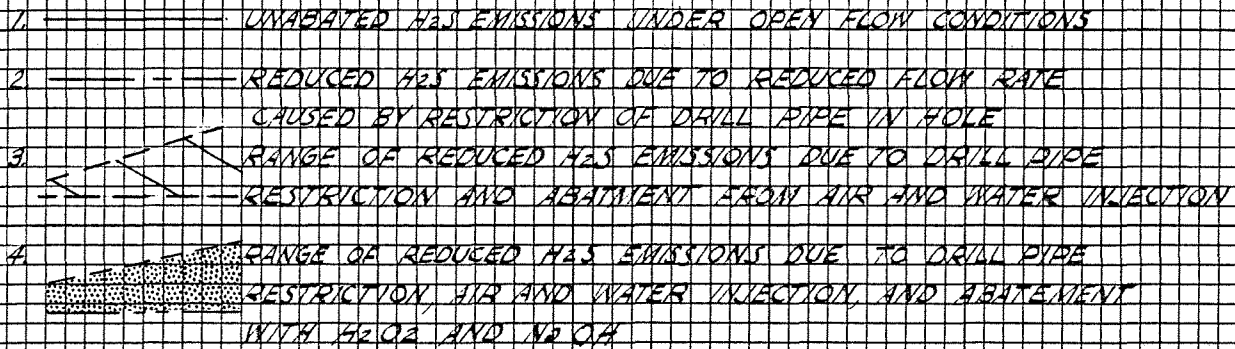 1. UNABATED H2S EMISSIONS UNDER OPEN FLOW CONDITIONS
2 REDUCED H2S EMISSIONS DUE TO REDUCED FLOW RATE
CAUSED BY RESTRICTION OF DRILL PIPE IN HOLE
3. RANGE OF REDUCED H2S EMISSIONS DUE TO DRILL PIPE
RESTRICTION AND ABATMENT FROM AIR AND WATER INJECTION
4. RANGE OF REDUCED H2S EMISSIONS DUE TO DRILL PIPE
RESTRICTION, AIR AND WATER INJECTION, AND ABATEMENT
WITH H2O2 AND NaOH